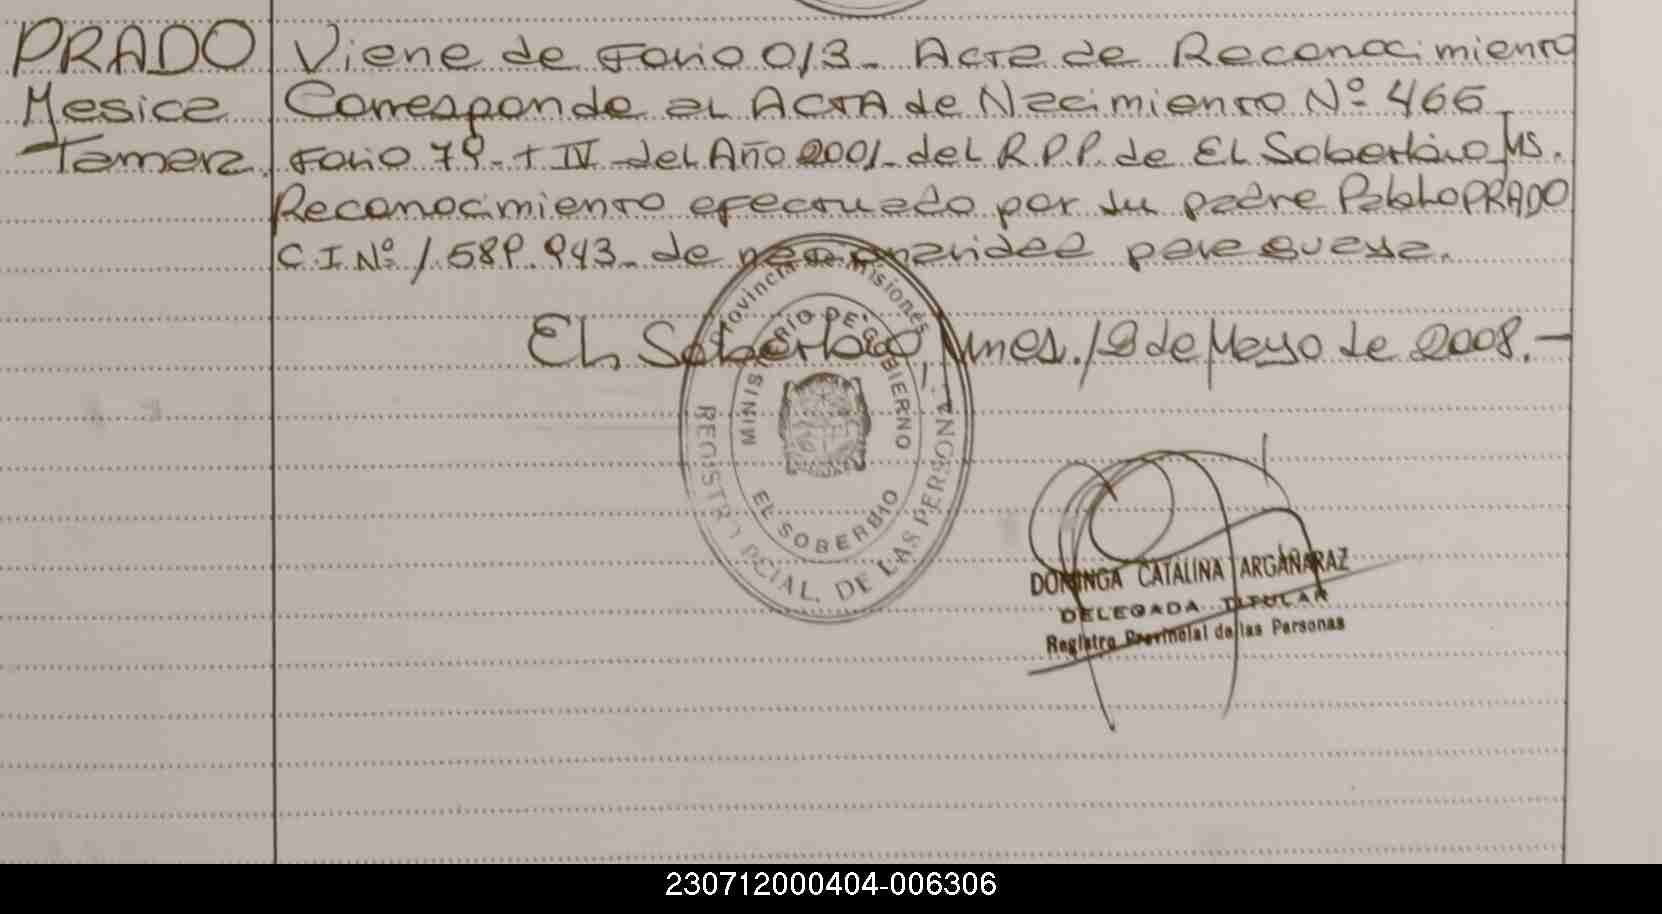 PRADO Viene de Folio 013_ Acta de Reconocimiento
Yesica Corresponde al ACTA de Nacimiento Nº 466
Tamara. Folio 79_ t IV del Año 2001_ del R.P.P. de El Soberbio_ Ms.
Reconocimiento efectuado por su padre Pablo PRADO
C.I Nº 1.589.943_ de nacionalidad paraguaya.
El Soberbio, Mnes. 12 de Mayo de 2008.-
Provincia de Misiones
MINISTERIO DE GOBIERNO
EL SOBERBIO
REGISTRO PCIAL. DE LAS PERSONAS
DOMINGA CATALINA ARGAÑARAZ
DELEGADA TITULAR
Registro Provincial de las Personas
230712000404-006306